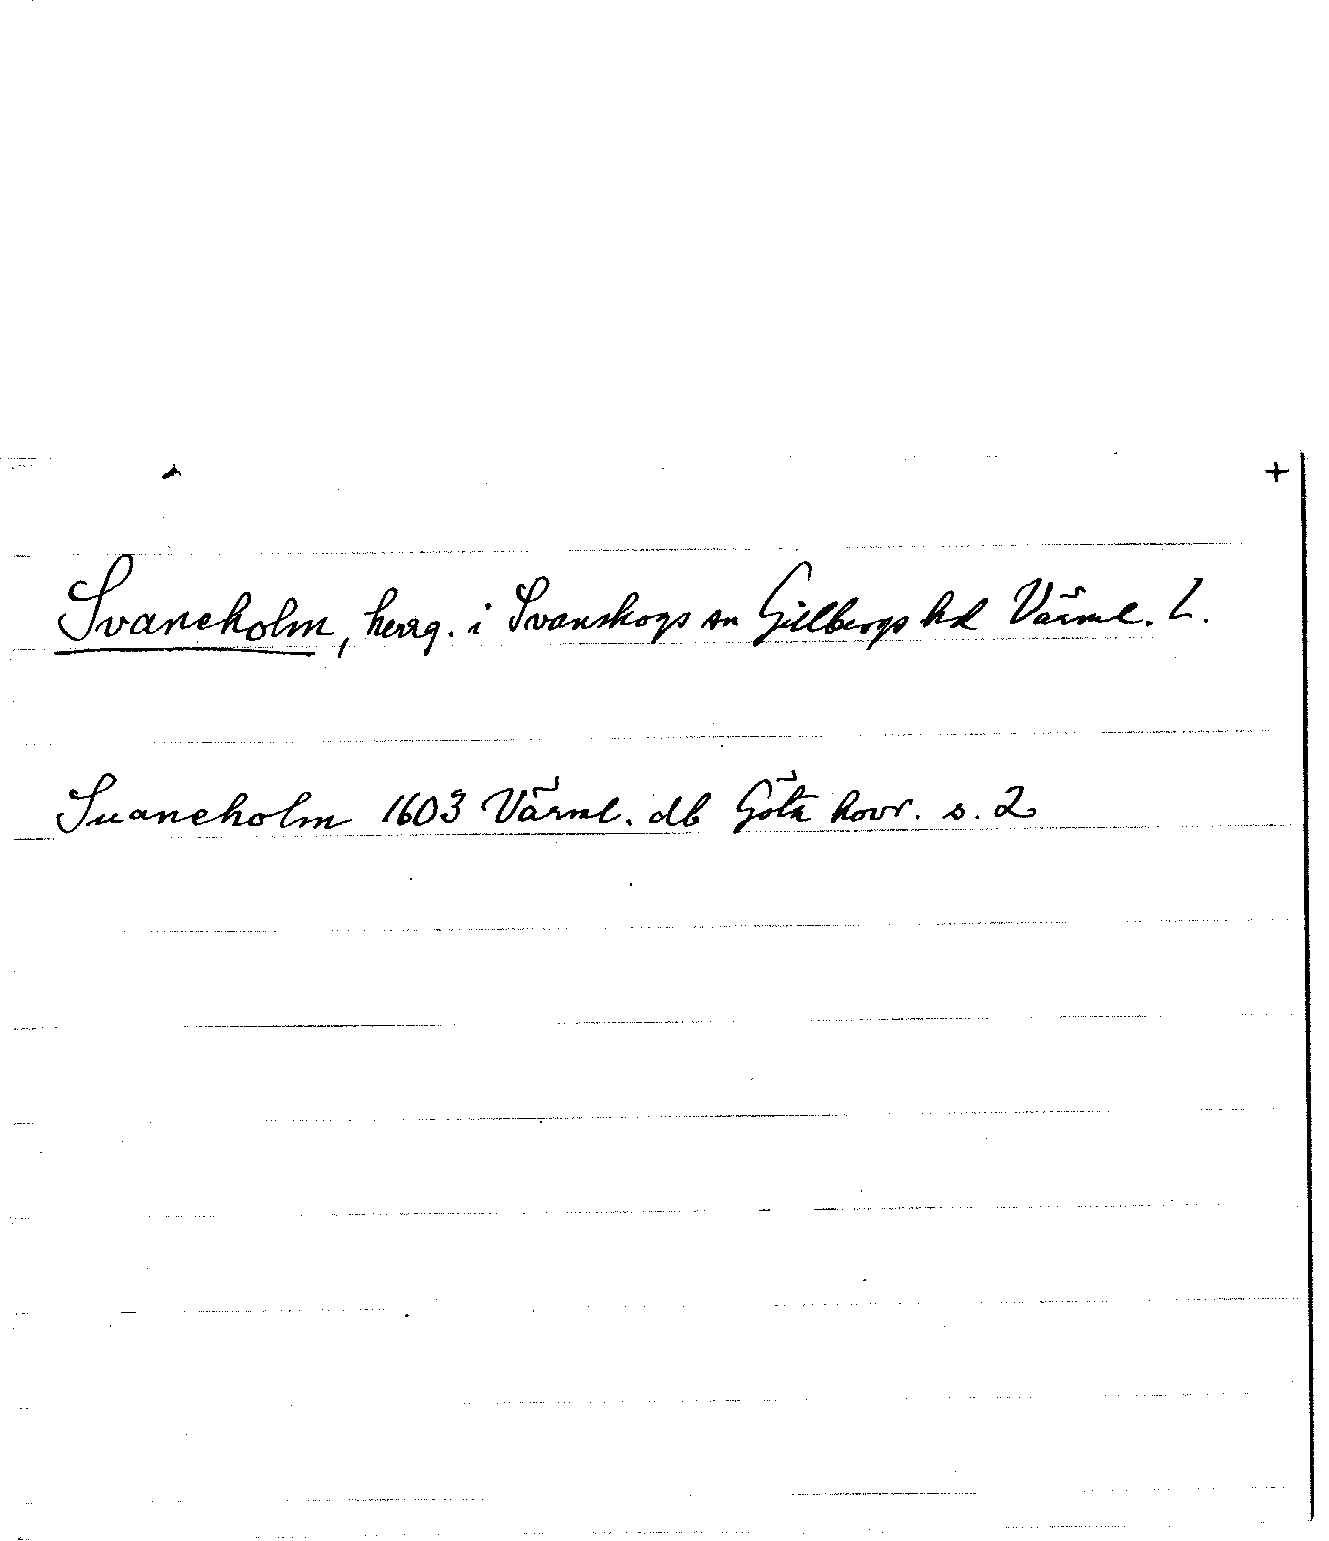 +
Svaneholm, herrg. i Svanskogs sn Gillbergs hd Värml. L.
Suaneholm 1603 Värml. db Göta hovr. s. 2